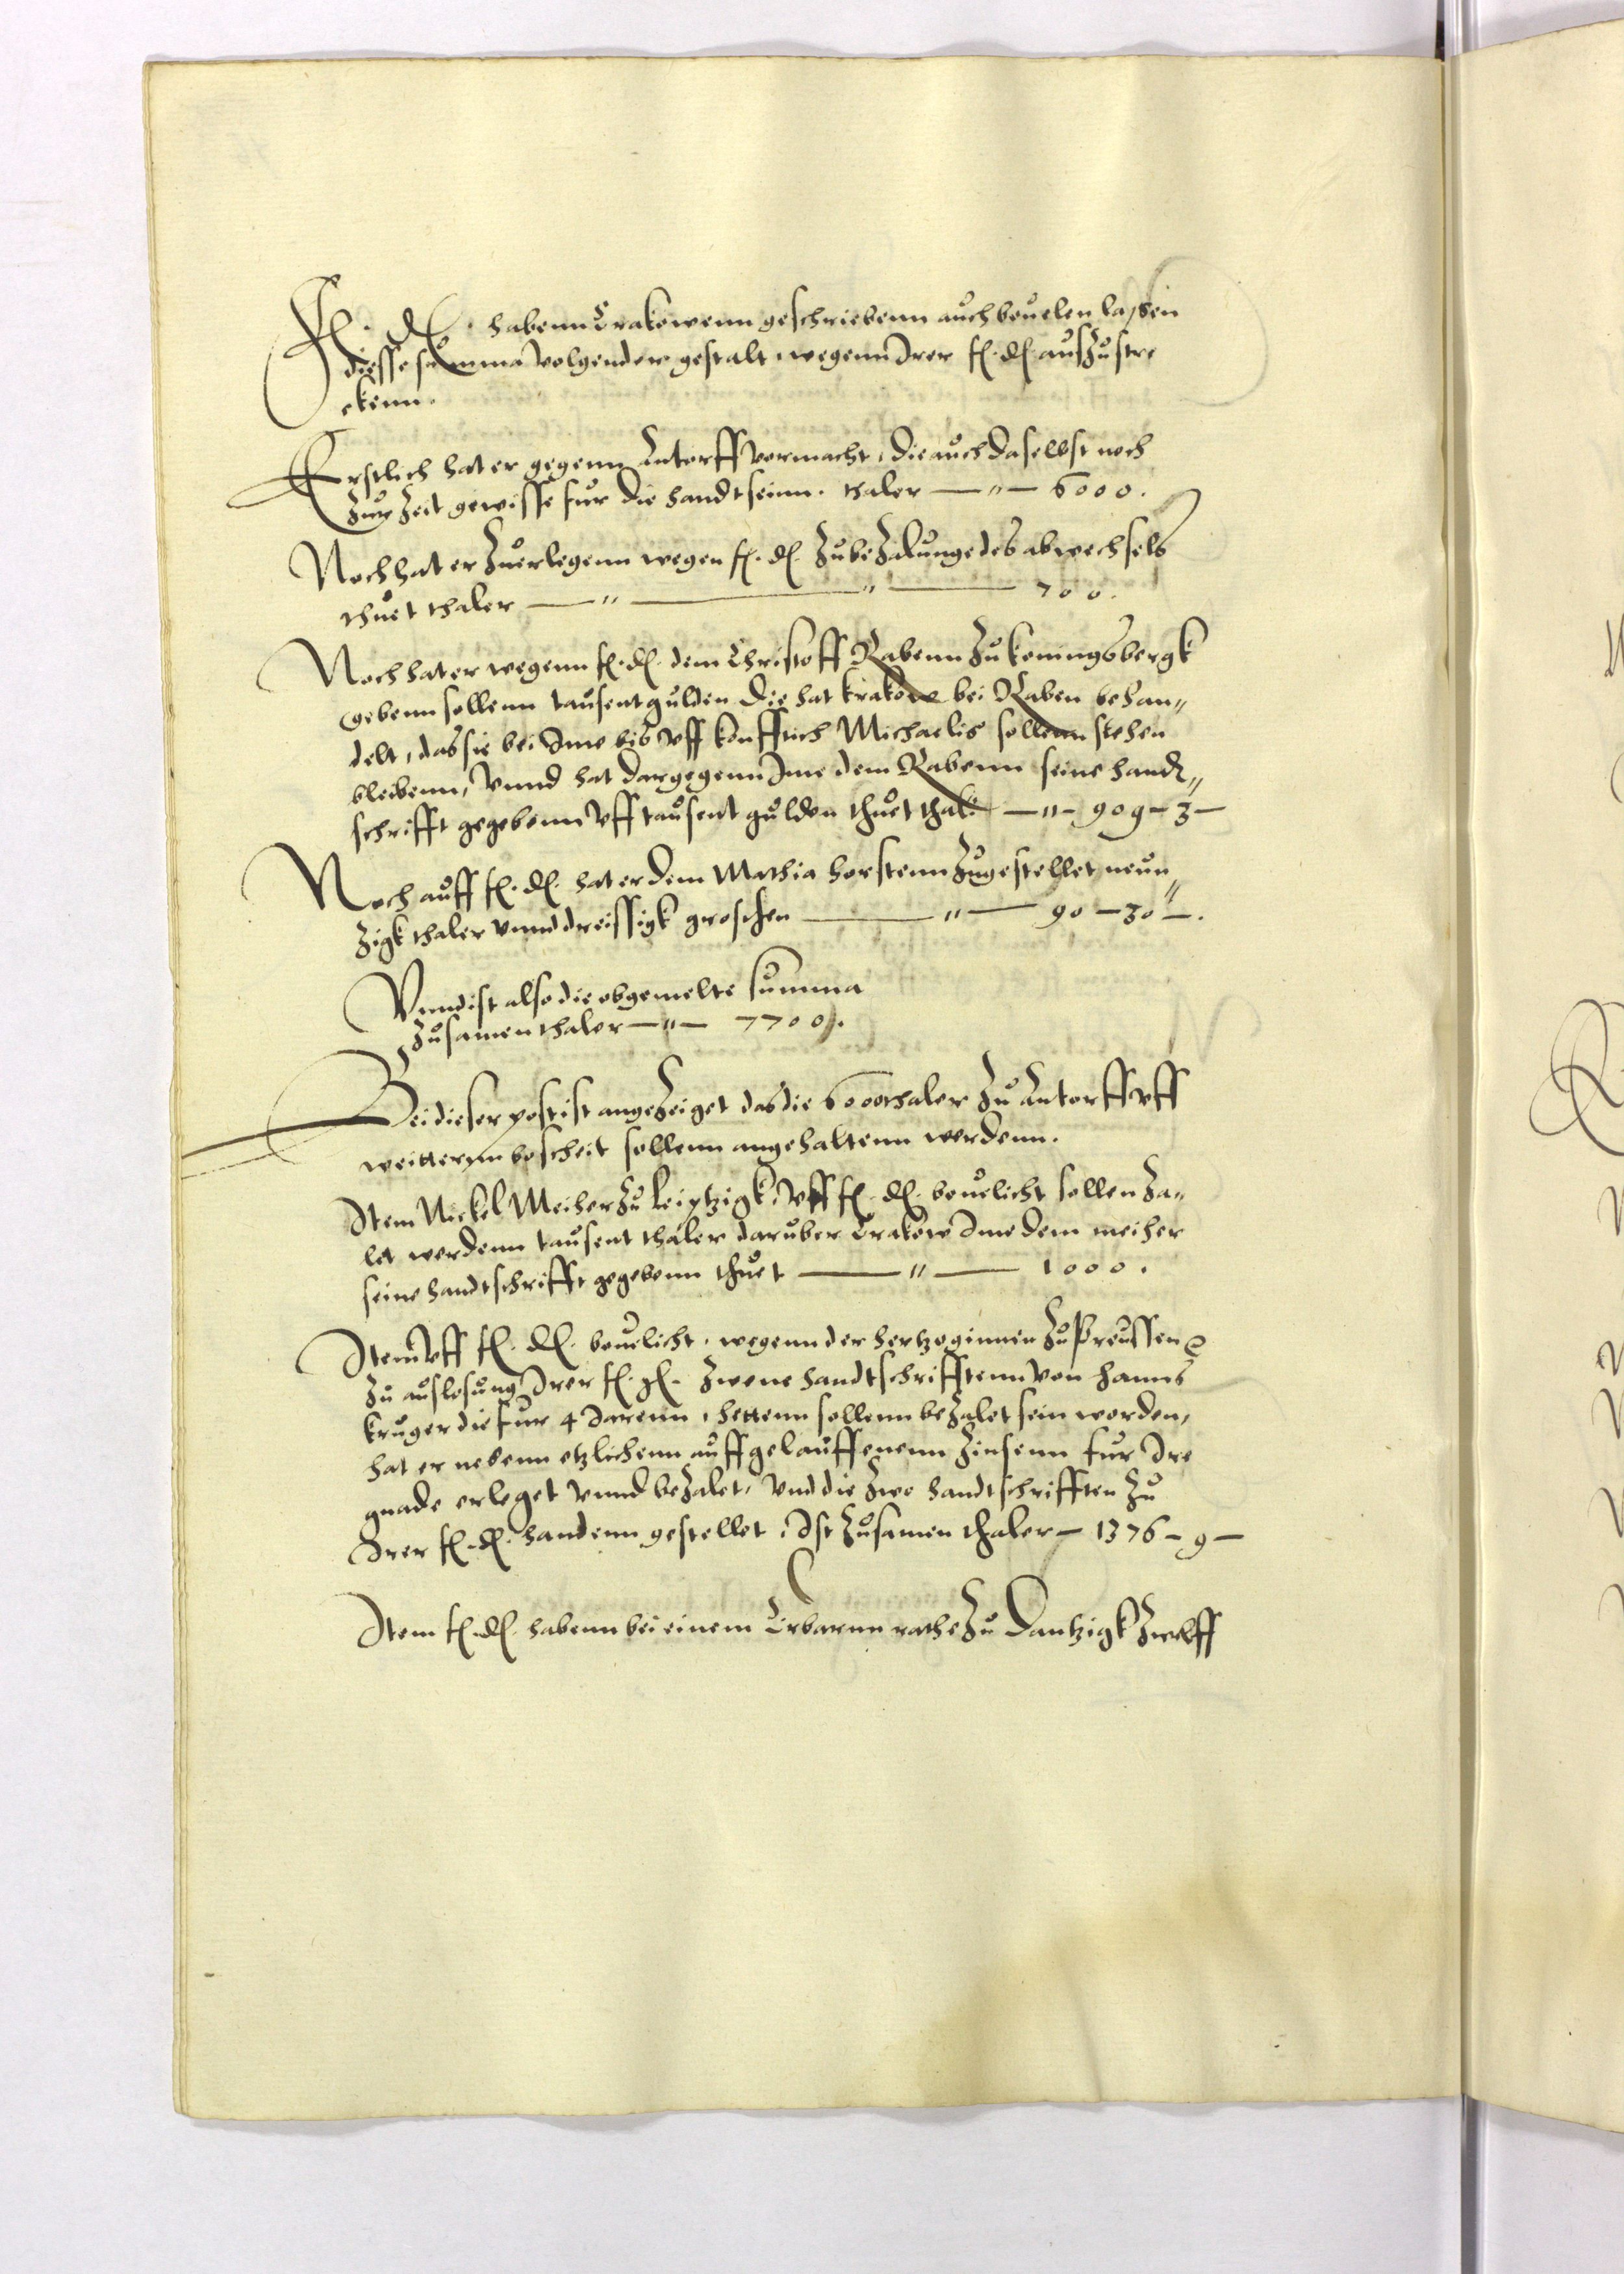 F. D. habenn Crakowenn geschriebenn auch beuelen lassen
diesse summa volgender gestalt, wegenn Irer f. d. auszustre
ckenn.
Erstlich hat er gegenn Antorff vermacht, die auch daselbst noch
zur zeit gewisse fur die handt seinn. thaler — " — 6000.
Noch hat er zuerlegenn wegen f. d. zubezalunge des abwechsels
thuet thaler — " — " — 700.
Noch hat er wegenn f. d. dem Christoff Rabenn zu koningsbergk
gebenn sollenn tausent gulden die hat krakow bei Raben behan„
delt, das sie bei Ime bis vff konfftich Michaelis sollenn stehen
bleibenn, vnnd hat dargegenn Ime dem Rabenn seine handt„
schrifft gegebenn vff tausent gulden thuet thal. — " — 909 — 3 —
Noch auff f. d. hat er dem Mathia horstenn zugestellet neun„
zigk thaler vnnd dreissigk groschen — " — 90 — 30 — .
Vnnd ist also die obgemelte summa
zusamen thaler — " — 7700.
Bei dieser post ist angezeiget das die 6000 thaler zu Antorff vff
weitternn bescheit sollenn angehaltenn werdenn.
Item Nickel Meiher zu Leiptzigk, vff f. d. beuelicht sollen za„
let werdenn tausent thaler daruber Crakow Ime dem meiher
seine handtschrifft gegebenn thuet — " — 1000.
Item vff f. d. beuelicht, wegenn der hertzoginnen zu Preussen
zu auslosung Irer f. g. zwene handtschrifftenn von hanns
kruger die fur 4 Iarenn, hettenn sollenn bezalet sein worden,
hat er nebenn etzlichenn auffgelauffenenn zinsenn fur Ire
gnade erleget vnnd bezalet, vnd die zwo handtschrifften zu
Irer f. d. handenn gestellet, Ist zusamen thaler — 1376 — 9 —
Item f. d. habenn bei einem Erbarnn rathe zu Dantzigk zwelff